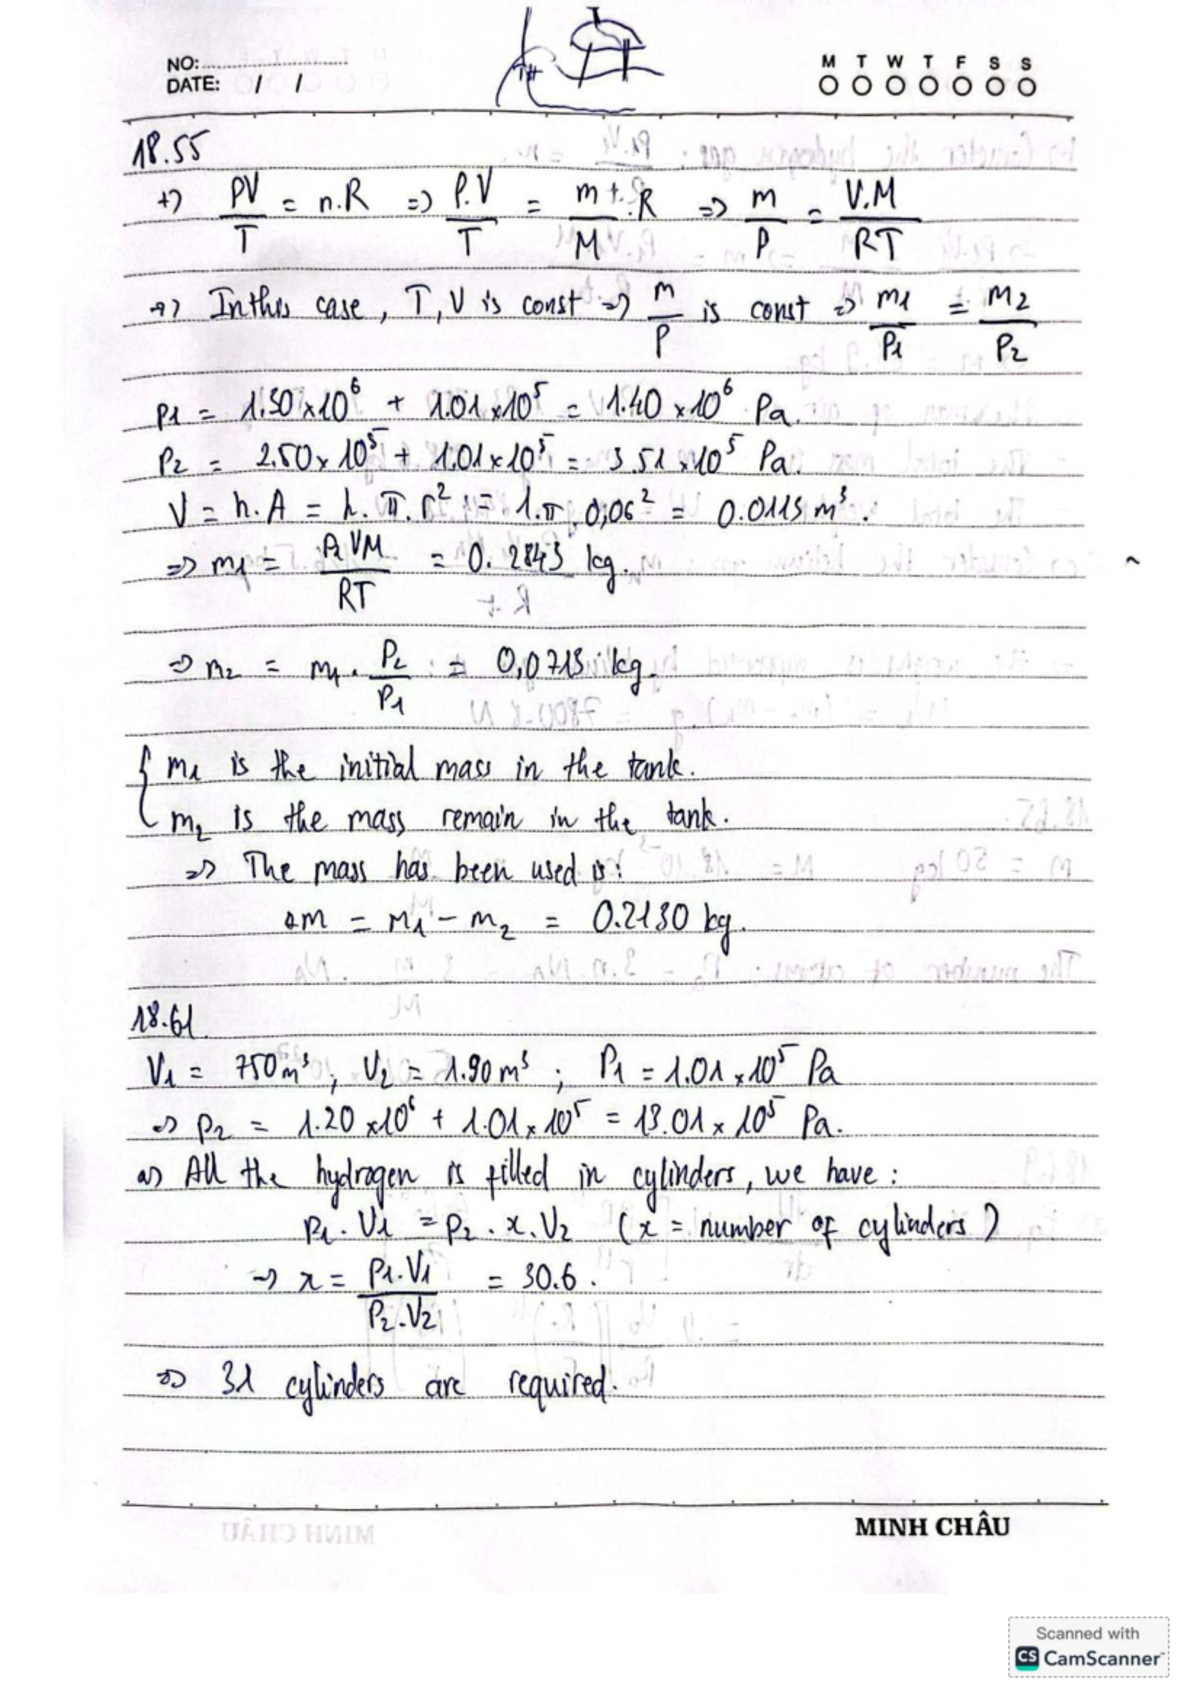 NO:
DATE: / /
M T W T F S S
18.55
+) PV/T = n.R => P.V/T = m/M .R => m/P = V.M/RT
+) In this case, T, V is const => m/P is const => m1/P1 = m2/P2
P1 = 1.30 x 10^6 + 1.01 x 10^5 = 1.40 x 10^6 Pa.
P2 = 2.50 x 10^5 + 1.01 x 10^5 = 3.51 x 10^5 Pa.
V = h.A = h.π.r^2 = 1.π.0,06^2 = 0.0113 m^3.
=> m1 = P1VM/RT = 0.2843 kg.
=> m2 = m1 . P2/P1 = 0,0713 kg.
{ m1 is the initial mass in the tank.
m2 is the mass remain in the tank.
=> The mass has been used is:
ΔM = m1 - m2 = 0.2130 kg.
18.61.
V1 = 750 m^3 ; V2 = 1.90 m^3 ; P1 = 1.01 x 10^5 Pa
=> P2 = 1.20 x 10^6 + 1.01 x 10^5 = 13.01 x 10^5 Pa.
a) All the hydrogen is filled in cylinders, we have:
P1.V1 = P2.x.V2 (x = number of cylinders)
=> x = P1.V1/P2.V2 = 30.6.
=> 31 cylinders are required.
MINH CHÂU
Scanned with
CS CamScanner